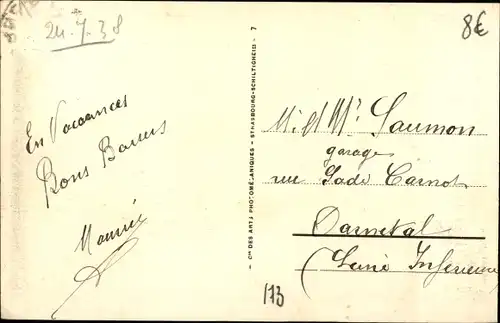 24-7-38
8€
En Vacances
Bons Baisers
Maurice
Cie DES ARTS PHOTOMÉCANIQUES - STRASBOURG-SCHILTIGHEIM - 7
M. et Mme Saumon
garage
rue Sadi Carnot
Darnetal
(Seine Inférieure)
113